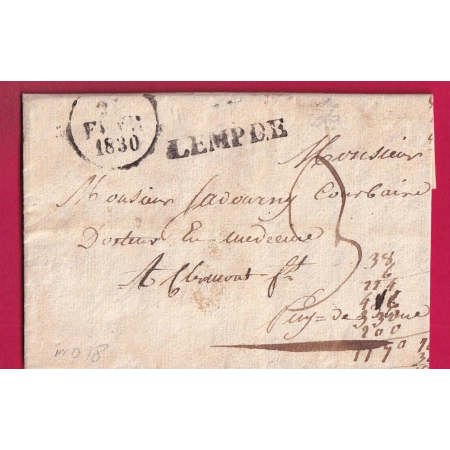 FEVR
1830
LEMPDE
Monsieur
Monsieur Ladourny Courbaire
Docteur En medecine
A Clermont ft
Puy = de = Dome
3
38
6
114
100
1170